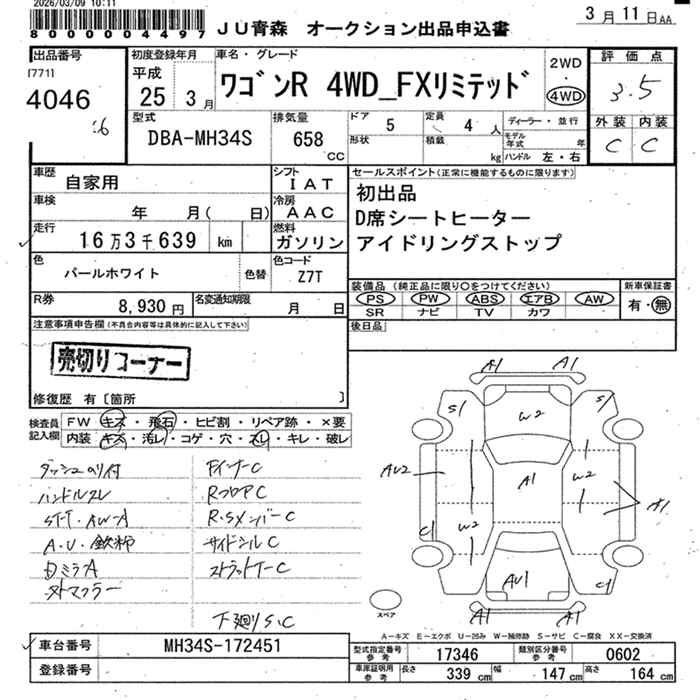 2026/03/09 10:11
800000004497
JU青森 オークション出品申込書
3月11日AA
出品番号
[771]
4046
初度登録年月
平成
25 3月
車名・グレード
ワゴンR 4WD_FXリミテッド
2WD
・
4WD
評価点
3.5
外装 内装
C C
型式
DBA-MH34S
排気量
658
CC
ドア 5
形状
定員 4 人
積載 kg
ディーラー・並行
モデル年式 年
ハンドル 左・右
車歴
自家用
シフト
IAT
車検
年 月( 日)
冷房
AAC
走行
16万3千639 km
燃料
ガソリン
色
パールホワイト
色替
色コード
Z7T
R券
8,930 円
名変通知期限
月 日
セールスポイント(正常に機能するものに限ります)
初出品
D席シートヒーター
アイドリングストップ
装備品(純正品に限り○をつけてください)
PS PW ABS エアB AW
SR ナビ TV カワ
新車保証書
有・無
後日品
注意事項申告欄(不具合内容等は具体的に記入して下さい)
売切りコーナー
修復歴 有〔箇所 〕
検査員
記入欄
FW キズ・飛石・ヒビ割・リペア跡・×要
内装 キズ・汚レ・コゲ・穴・スレ・キレ・破レ
ダッシュのり付
ハンドルスレ
STT・AW-A
A.U・鉄柿
DミラA
外マフラー
FインナーC
RフロアC
R.SメンバーC
サイドシルC
ストラットT-C
下廻りS.C
A1
A1
S1
S1
W2
AU2
W2
A1
W2
A1
C1
C1
AU1
A1
A1
スペア
A-キズ E-エクボ U-凹み W-補修跡 S-サビ C-腐食 XX-交換済
車台番号
MH34S-172451
登録番号
型式指定番号
参考
17346
類別区分番号
参考
0602
車庫証明用
参考
長さ 339 cm
幅 147 cm
高さ 164 cm